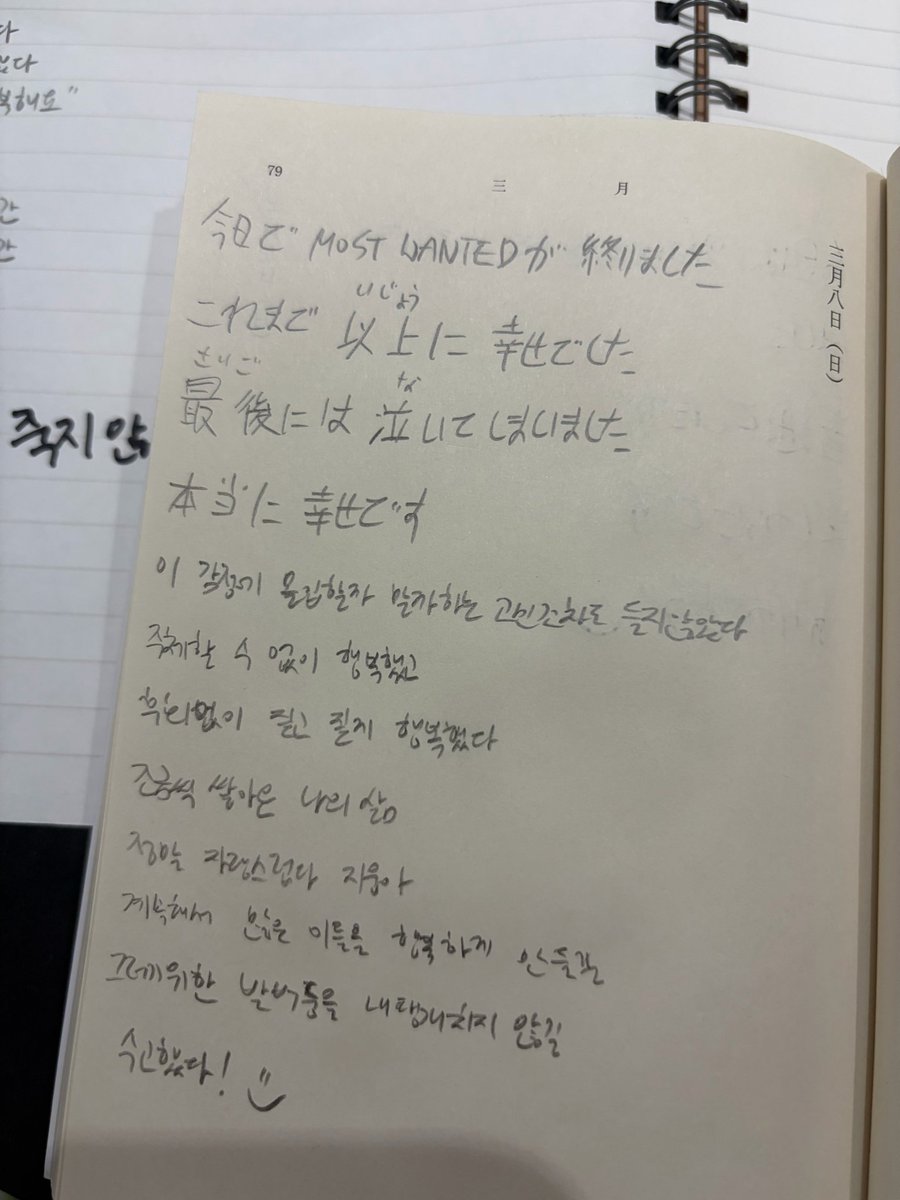 다
았다
복해요"
간
간
죽지 않
79 三 月
三月八日(日)
今日で MOST WANTEDが 終りました
いじょう
これまで 以上に 幸せでした
さいご な
最後には 泣いてしまいました
本当に 幸せです
이 감정에 몰입할자 말자하는 고민조차도 들지않았다
주체할 수 없이 행복했고
후회없이 질고 질게 행복했다
조금씩 쌓아온 나의 삶
정말 자랑스럽다 지훈아
계속해서 많은 이들을 행복하게 만들길
그를 위한 발버둥을 내팽개치지 않길
수고했다!